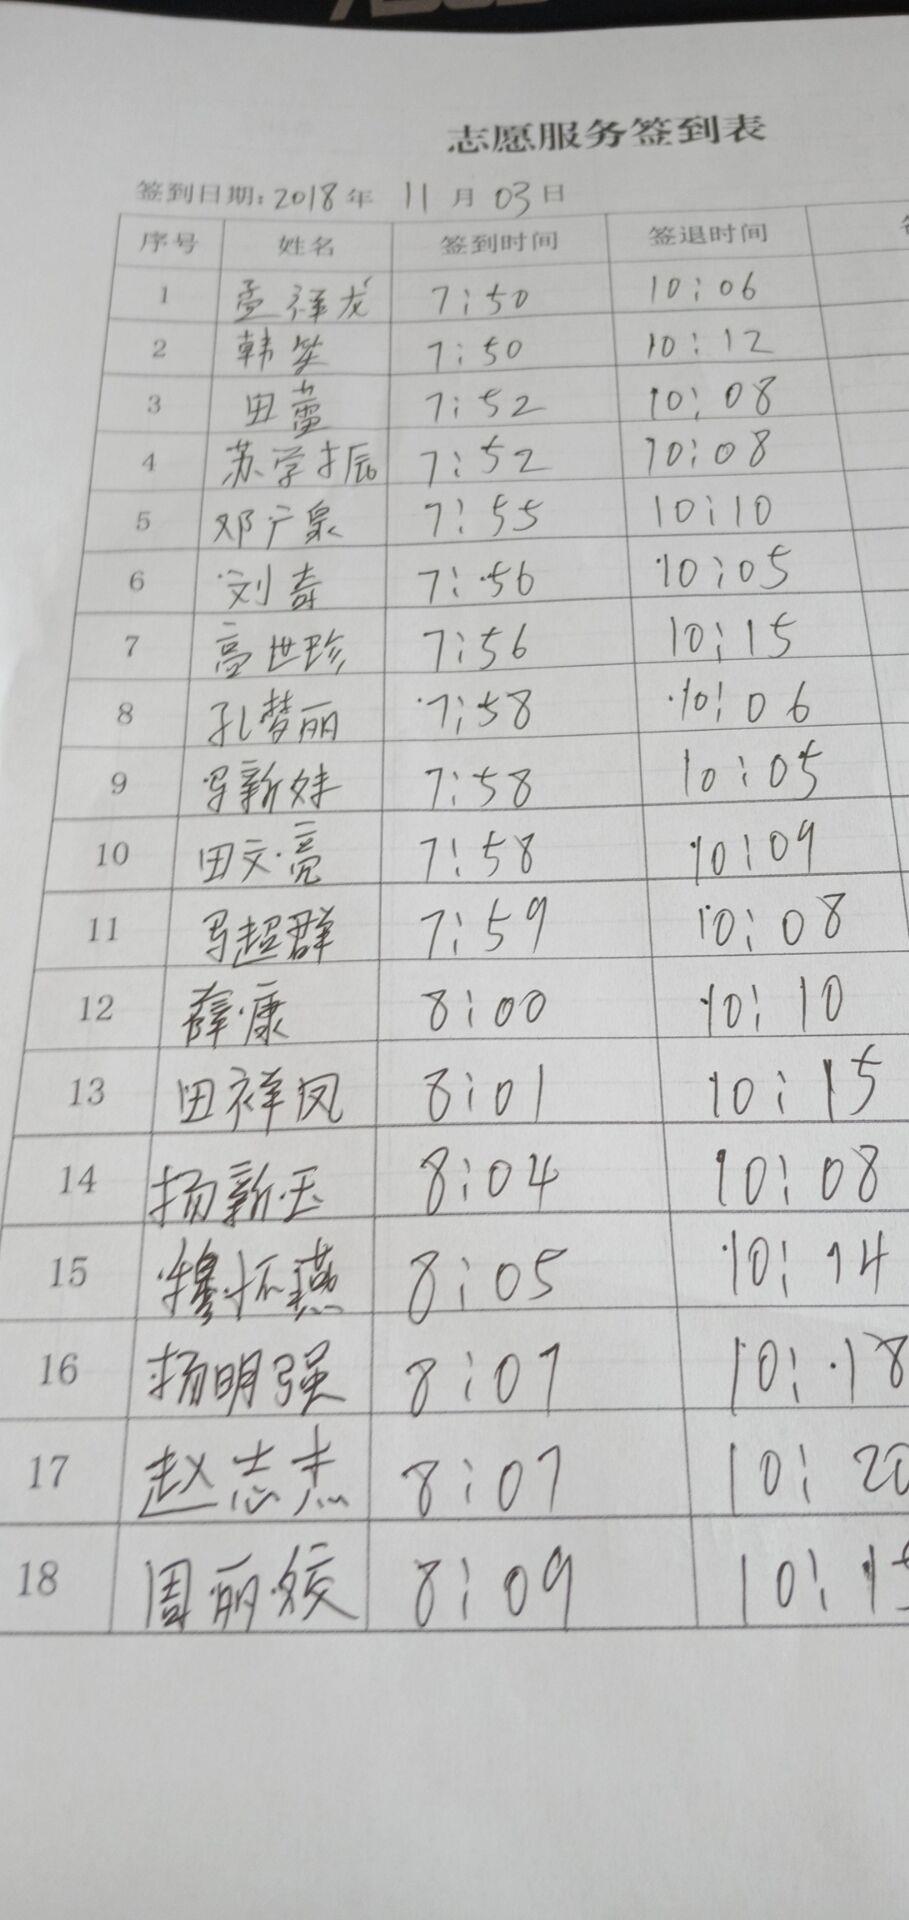 志愿服务签到表
签到日期:2018年 11月03日
序号 姓名 签到时间 签退时间
1 孟祥龙 7:50 10:06
2 韩笑 7:50 10:12
3 田蕾 7:52 10:08
4 苏学振 7:52 10:08
5 邓广泉 7:55 10:10
6 刘奇 7:56 10:05
7 高世珍 7:56 10:15
8 孔梦丽 7:58 10:06
9 冯新妹 7:58 10:05
10 田文亮 7:58 10:09
11 马超群 7:59 10:08
12 薛康 8:00 10:10
13 田祥凤 8:01 10:15
14 杨新玉 8:04 10:08
15 穆怀燕 8:05 10:14
16 杨明强 8:07 10:18
17 赵志杰 8:07 10:20
18 周丽姣 8:09 10:15